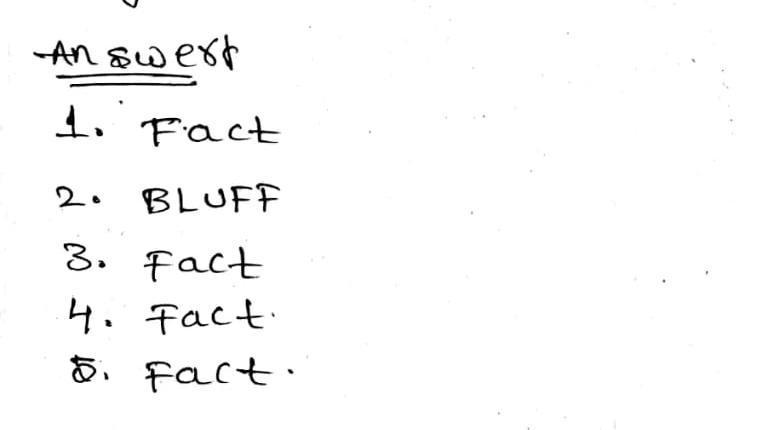 Answers
1. Fact
2. BLUFF
3. Fact
4. Fact.
5. Fact.